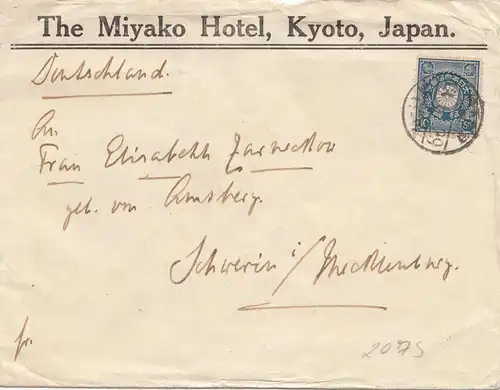 The Miyako Hotel, Kyoto, Japan.
Deutschland.
An
Frau Elisabeth
geb. von Amsberg.
Schwerin i/Mecklenburg.
fr.
2075
10